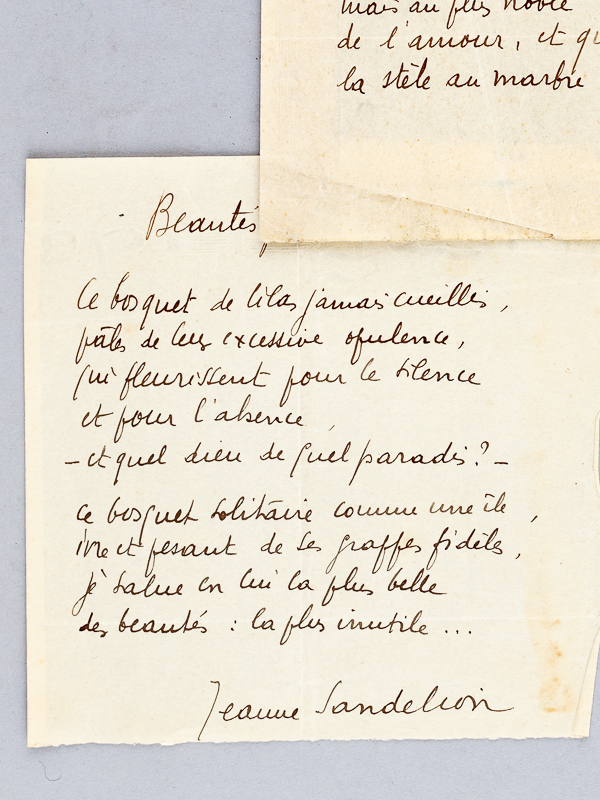 mais au plus noble
de l'amour, et qu
la stèle au marbre
Beautés
Ce bosquet de lilas jamais cueillis,
pâles de leur excessive opulence,
qui fleurissent pour le silence
et pour l'absence,
– et quel dieu de quel paradis ? –
ce bosquet solitaire comme une île,
ivre et pesant de ses grappes fidèles,
je salue en lui la plus belle
des beautés : la plus inutile ...
Jeanne Sandelion